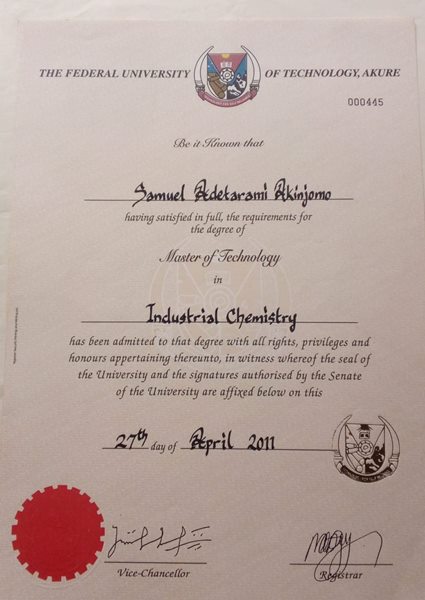 THE FEDERAL UNIVERSITY OF TECHNOLOGY, AKURE
000445
Be it Known that
Samuel Adetarami Akinjomo
having satisfied in full, the requirements for
the degree of
Master of Technology
in
Industrial Chemistry
has been admitted to that degree with all rights, privileges and
honours appertaining thereunto, in witness whereof the seal of
the University and the signatures authorised by the Senate
of the University are affixed below on this
27th day of April 2011
Vice-Chancellor
Registrar